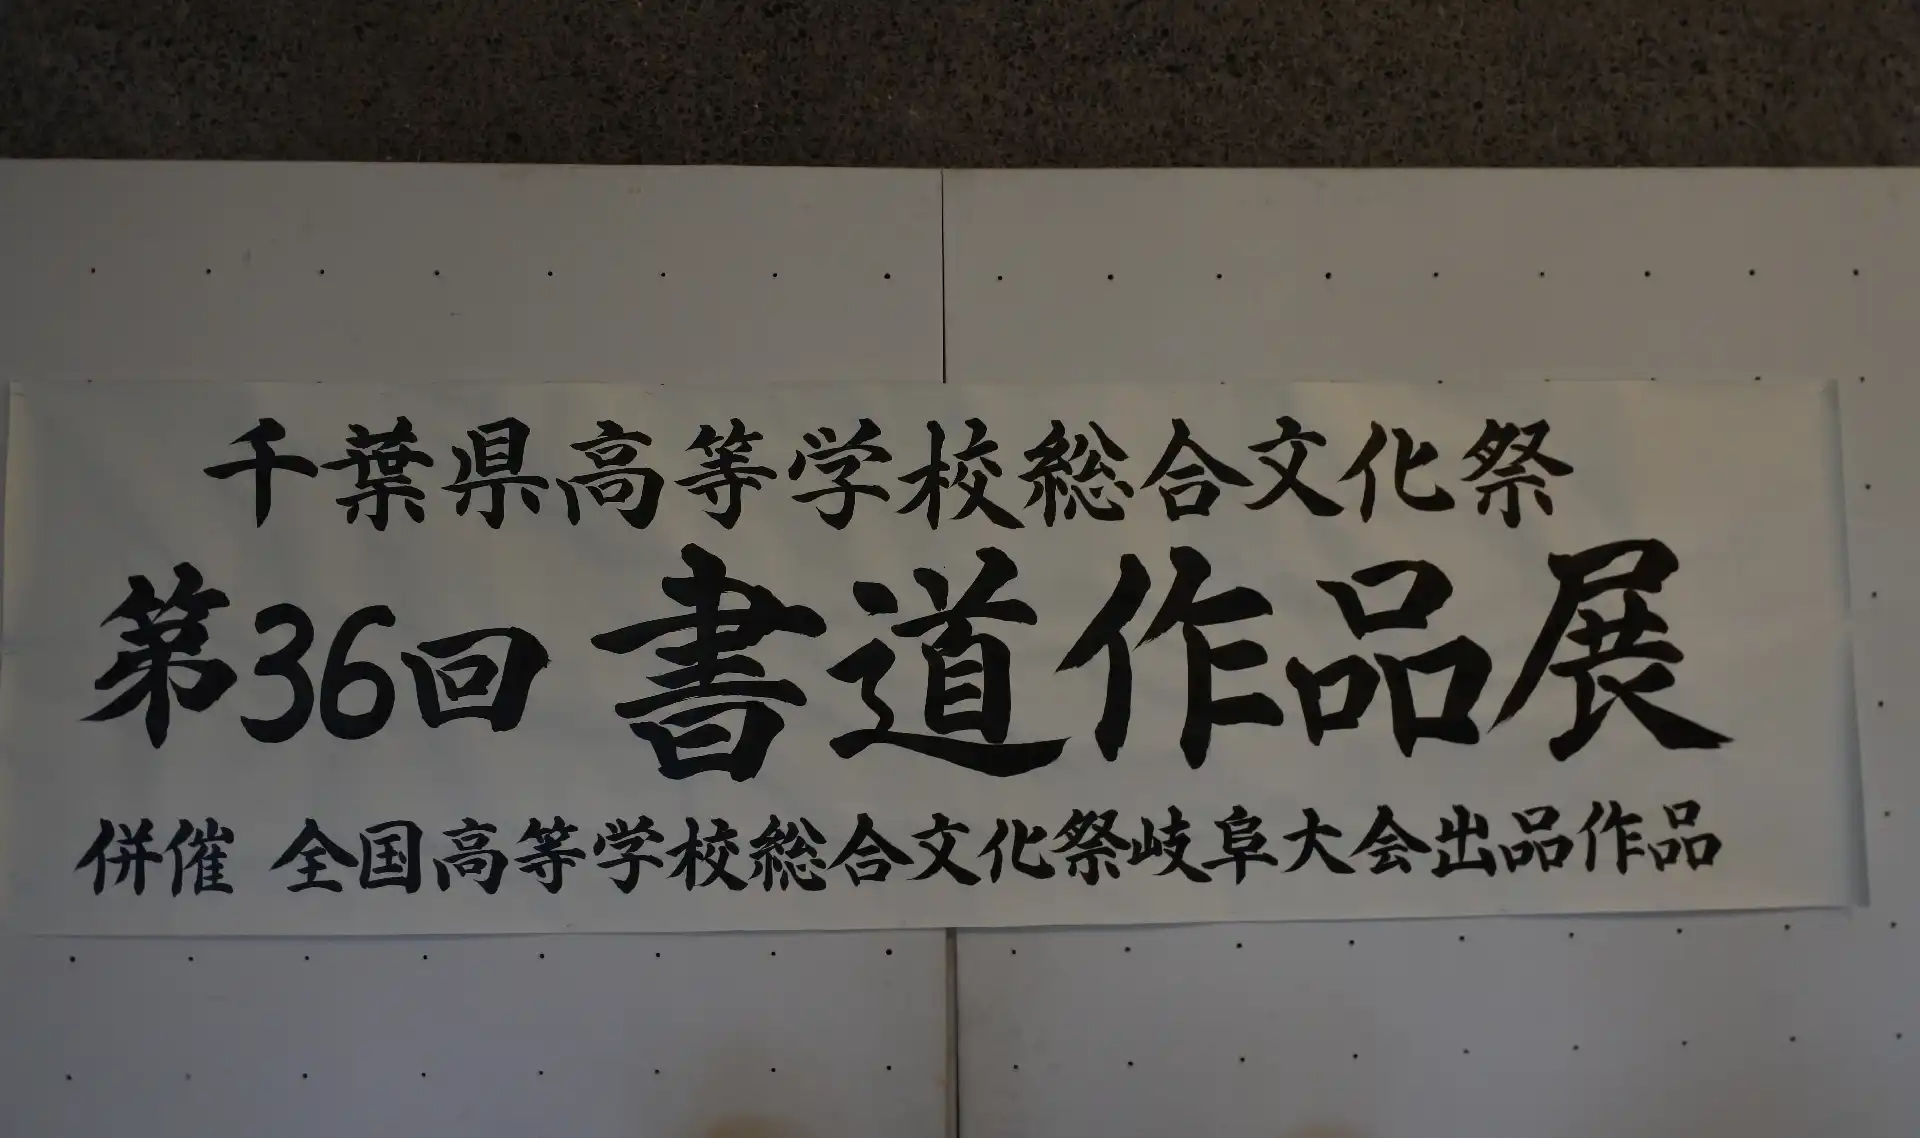 千葉県高等学校総合文化祭
第36回 書道作品展
併催 全国高等学校総合文化祭岐阜大会出品作品